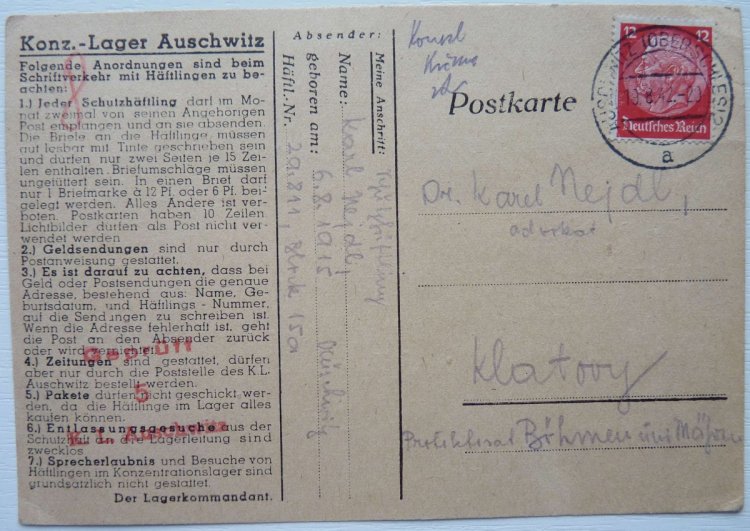 Konz.-Lager Auschwitz
Folgende Anordnungen sind beim
Schriftverkehr mit Häftlingen zu be-
achten:
1.) Jeder Schutzhäftling darf im Mo-
nat zweimal von seinen Angehörigen
Post empfangen und an sie absenden.
Die Briefe an die Häftlinge müssen
gut lesbar mit Tinte geschrieben sein
und dürfen nur zwei Seiten je 15 Zei-
len enthalten. Briefumschläge müssen
ungefüttert sein. In einen Brief darf
nur 1 Briefmarke à 12 Pf. oder 6 Pf. bei-
gelegt werden. Alles Andere ist ver-
boten. Postkarten haben 10 Zeilen.
Lichtbilder dürfen als Post nicht ver-
wendet werden
2.) Geldsendungen sind nur durch
Postanweisung gestattet.
3.) Es ist darauf zu achten, dass bei
Geld oder Postsendungen die genaue
Adresse, bestehend aus: Name, Ge-
burtsdatum, und Häftlings - Nummer,
auf die Sendungen zu schreiben ist.
Wenn die Adresse fehlerhaft ist, geht
die Post an den Absender zurück
oder wird vernichtet.
4.) Zeitungen sind gestattet, dürfen
aber nur durch die Poststelle des K.L.
Auschwitz bestellt werden.
5.) Pakete dürfen nicht geschickt wer-
den, da die Häftlinge im Lager alles
kaufen können.
6.) Entlassungsgesuche aus der
Schutzhaft an die Lagerleitung sind
zwecklos
7.) Sprecherlaubnis und Besuche von
Häftlingen im Konzentrationslager sind
grundsätzlich nicht gestattet.
Der Lagerkommandant.
Geprüft
5
K. L. Auschwitz
Absender:
Meine Anschrift:
Name: Karl Nejdl,
geboren am: 6.8.1915
Häftl.-Nr. 29.811, Block 15a
Postkarte
12 12
Deutsches Reich
a
Dr. Karel Nejdl,
advokat
Klatovy
Protektorat Böhmen und Mähren